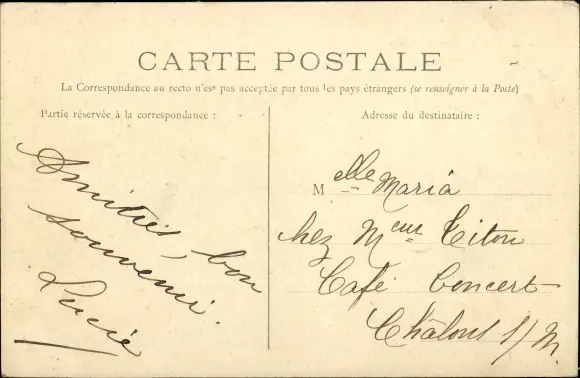 CARTE POSTALE
La Correspondance au recto n'est pas acceptée par tous les pays étrangers (se renseigner à la Poste)
Partie réservée à la correspondance :
Amitiés, bon
souvenir.
Lucie
Adresse du destinataire :
Melle Maria
chez Meur Titon
Café Concert
Châlons s/M.